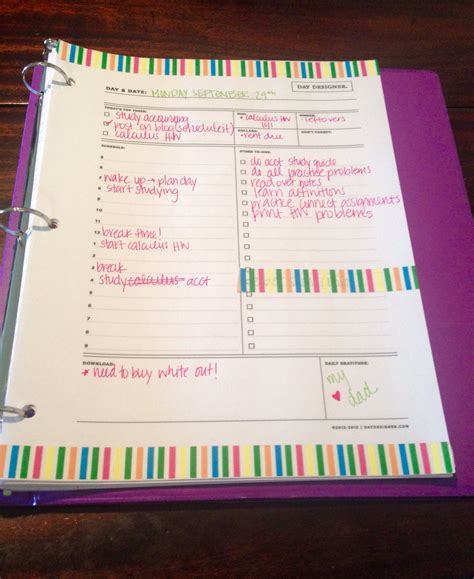 DAY & DATE: MONDAY SEPTEMBER 29TH
DAY DESIGNER.
TODAY'S TOP THREE:
study accounting
post on blog (schedule it)
calculus HW
DUE:
calculus HW
DOLLARS:
rent due
DINNER:
leftovers
DON'T FORGET:
SCHEDULE:
wake up → plan day
start studying
break time!
start calculus HW
break
study calculus acct
OTHER TO-DOS:
do acct study guide
do all practice problems
read over notes
learn definitions
practice connect assignments
print HW problems
DOWNLOAD:
* need to buy white out!
DAILY GRATITUDE:
my
dad
©2012-2013 | DAYDESIGNER.COM